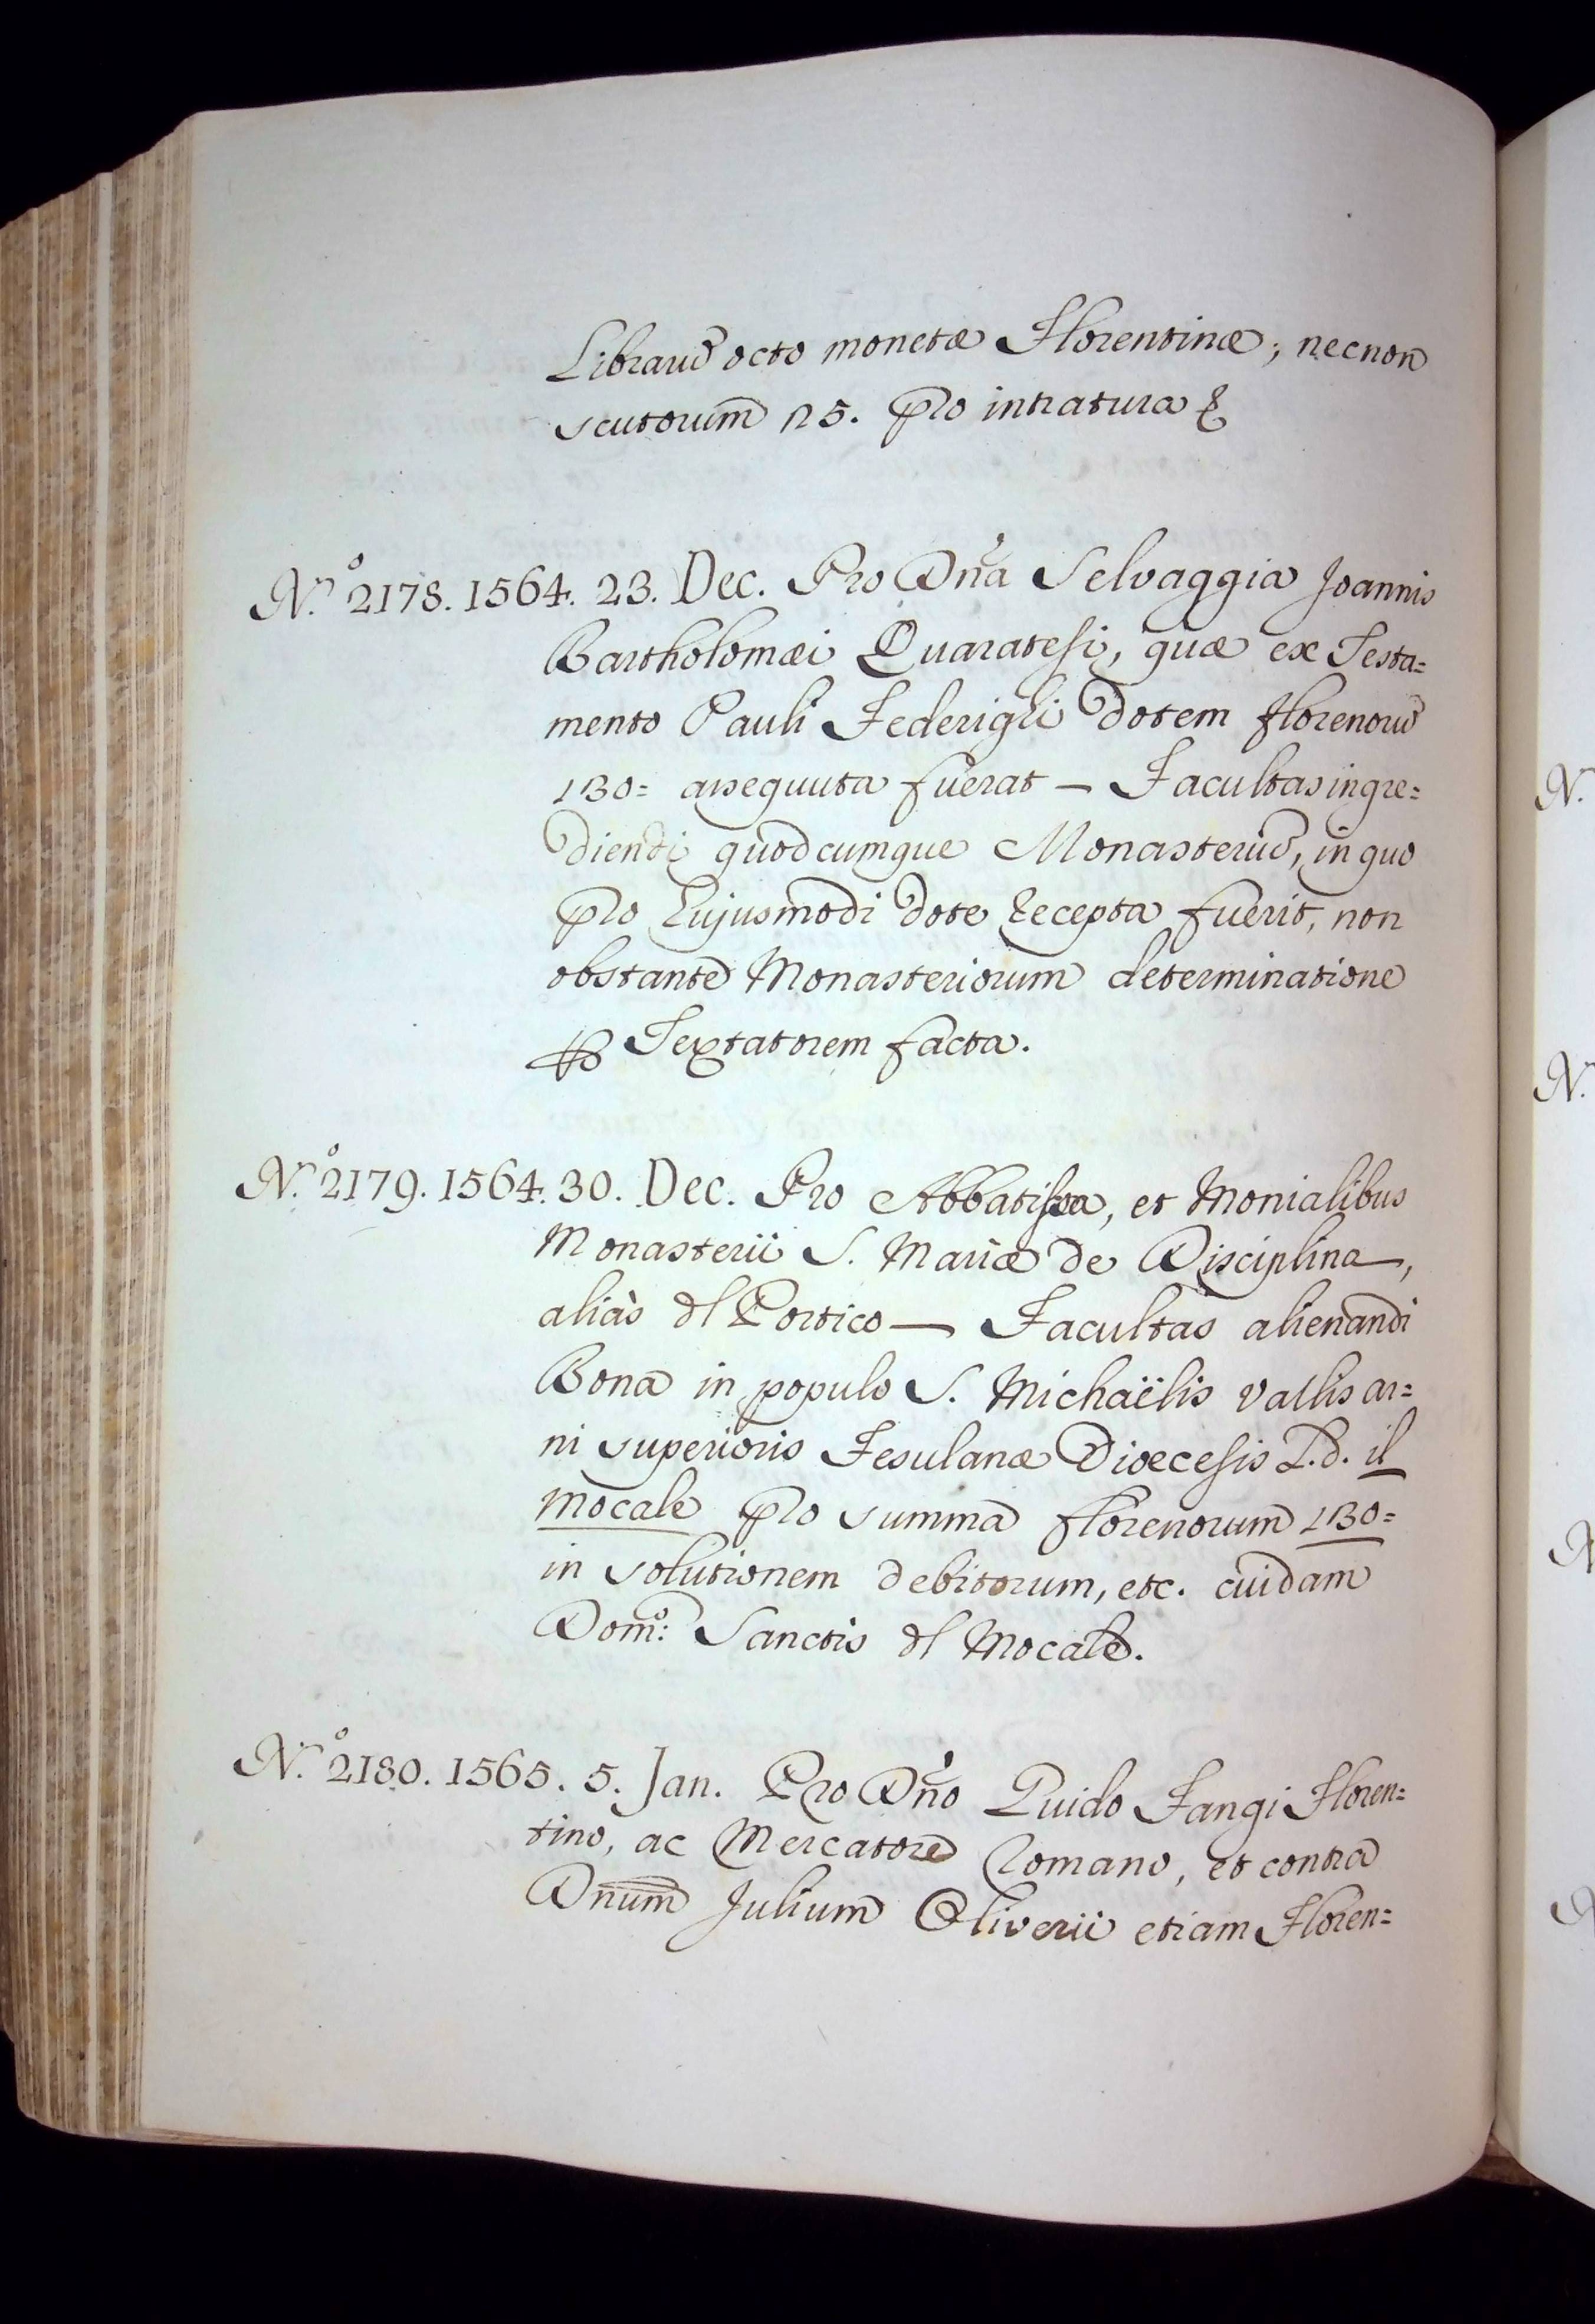 Libraru̅ octo monetæ Florentinæ; necnon
scutorum 25. pro intratura &
N.º 2178. 1564. 23. Dec. Pro Dña Selvaggia Joannis
Bartholomæi Quaratesi, quæ ex Testa=
mento Pauli Federighi dotem florenoru̅
130= assequuta fuerat — Facultas ingre=
diendi quodcumque Monasteriu̅, in quo
pro hujusmodi dote recepta fuerit, non
obstante Monasteriorum determinatione
Testatorem facta.
N.º 2179. 1564. 30. Dec. Pro Abbatissa, et Monialibus
Monasterii S. Mariæ de Disciplina,
aliàs dl Portico — Facultas alienandi
Bona in populo S. Michaëlis Vallis ar=
ni superioris Fesulanæ Dioecesis L.d. il
Mocale pro summa florenorum 130=
in solutionem debitorum, etc. cuidam
Dom.º Sanctis dl Mocale.
N.º 2180. 1565. 5. Jan. Pro Dño Guido Fangi Floren=
tino, ac Mercatore Romano, et contra
Dnum Julium Oliverii etiam Floren=
N.
N.
N